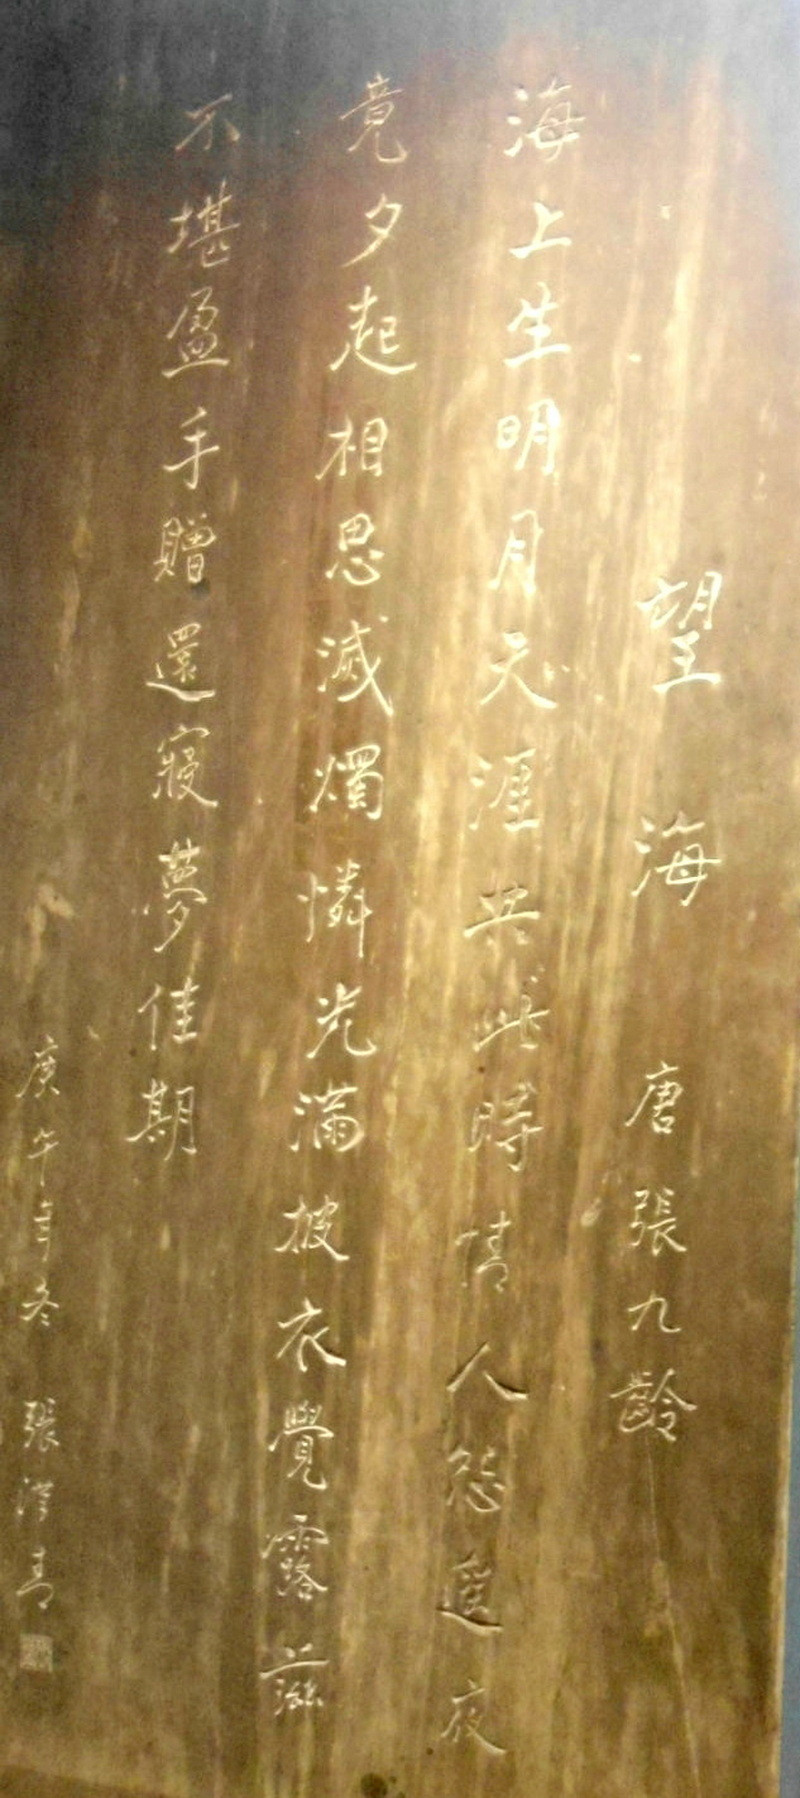 望海 唐 張九齡
海上生明月天涯共此時情人怨遥夜
竟夕起相思滅燭憐光滿披衣覺露滋
不堪盈手贈還寢夢佳期
庚午年冬 張